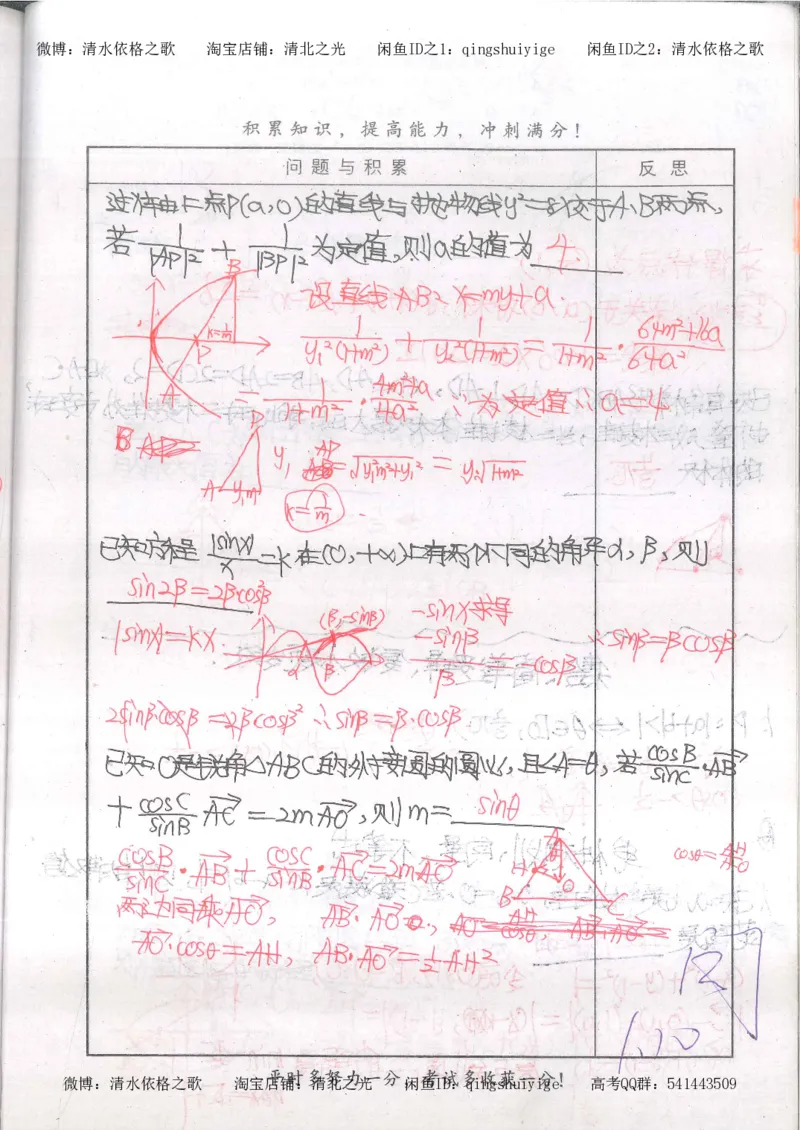 微博：清水依格之歌 淘宝店铺：清北之光 闲鱼ID之1：qingshuiyige 闲鱼ID之2：清水依格之歌
积累知识，提高能力，冲刺满分！
问题与积累 反思
点P(a,0)的直线与抛物线y²=8x交于A、B两点,
若 1/|AP|² + 1/|BP|² 为定值,则a的值为 4.
B
设直线AB: x=my+a.
k=1/m
P
A
1/(y₁²(1+m²)) + 1/(y₂²(1+m²)) = 1/(1+m²) · (64m²+16a)/(64a²)
= 1/(1+m²) · (4m²+a)/(4a²) ∵为定值∴a=4
A y₁m
y₁ AP = √(y₁²m²+y₁²) = y₁√(1+m²)
k=1/m
已知方程 |sinx|/x =k 在(0,+∞)上有两个不同的解α, β, 则
sin2β=2βcos²β
|sinx|=kx.
(β,-sinβ)
α β
-sinx求导
-sinβ/β = -cosβ
∴sinβ=βcosβ
2sinβ·cosβ=2βcosβ² ∴sinβ=β·cosβ
已知O是锐角△ABC的外接圆的圆心,且∠A=θ, 若 cosB/sinC · AB→
+ cosC/sinB AC→ =2mAO→, 则m= sinθ
cosB/sinC · AB→ + cosC/sinB · AC→ =2mAO→
A
H
O
B C
cosθ=AH/AO
两边同乘AO→, AB→·AO→
AO→·cosθ=AH, AB→·AO→=½AH²
阅
1.20
平时多努力一分，考试多收获一分！
微博：清水依格之歌 淘宝店铺：清北之光 闲鱼ID：qingshuiyige 高考QQ群：541443509